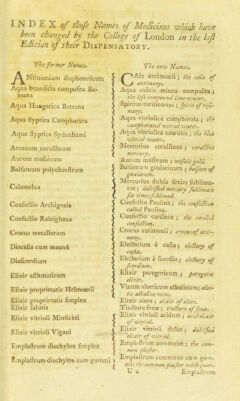 INDEX of those Names of Medicines which have
been changed by the College of London in the last
Edition of their DISPENSATORY.
The former Names.
ANtimonium diaphoreticum
Aqua benedicta composita Ba-
teana
Aqua Hungarica Bateana
Aqua styptica Camphorata
Aqua styptica Sydenhami
Arcanum corallinum
Aurum mosaicum
Balsamum polychrestum
Calomelas
Confectio Archigenis
Confectio Raleighana
Crocus metallorum
Diacassia cum manna
Diascordium
Elixir asthmaticum
Elixir proprietatis Helmontii
Elixir proprietatis simplex
Elixir salutis
Elixir vitrioli Minsichti
Elixir vitrioli Vigani
Emplastrum diachylon simplex
Emplastrum diachylon cum gummi
The new Names.
CAlx antimonii; the calx of
antimony.
Aqua calcis minus composita;
the less compound lime-water.
Spiritus rorismarini; spirit of rose-
mary.
Aqua vitriolica camphorata; the
camphorated vitriol water.
Aqua vitriolica caerulea; the blue
vitriol water.
Mercurius corallinus; coralline
mercury.
Aurum musivum; mosaic gold.
Balsamum guaiacinum; balsam of
guaiacum.
Mercurius dulcis sexies sublima-
tus; dulcified mercury sublimate
six times sublimed.
Confectio Paulina; the confection
called Paulina.
Confectio cardiaca; the cordial
confection.
Crocus antimonii; crocus of anti-
mony.
Electarium è casia; electary of
casia.
Electarium è scordio; electary of
scordium.
Elixir paregoricum; paregoric
elixir.
Vinum aloeticum alkalinum; aloe-
tic alkaline wine.
Elixir aloes; elixir of aloes.
Tinctura senae; tincture of sena.
Elixir vitrioli acidum; acid elixir
of vitriol.
Elixir vitrioli dulce; dulcified
elixir of vitriol.
Emplastrum commune; the com-
mon plaster.
Emplastrum commune cum gum-
mi; the common plaster with gums.
U 2
Emplastrum